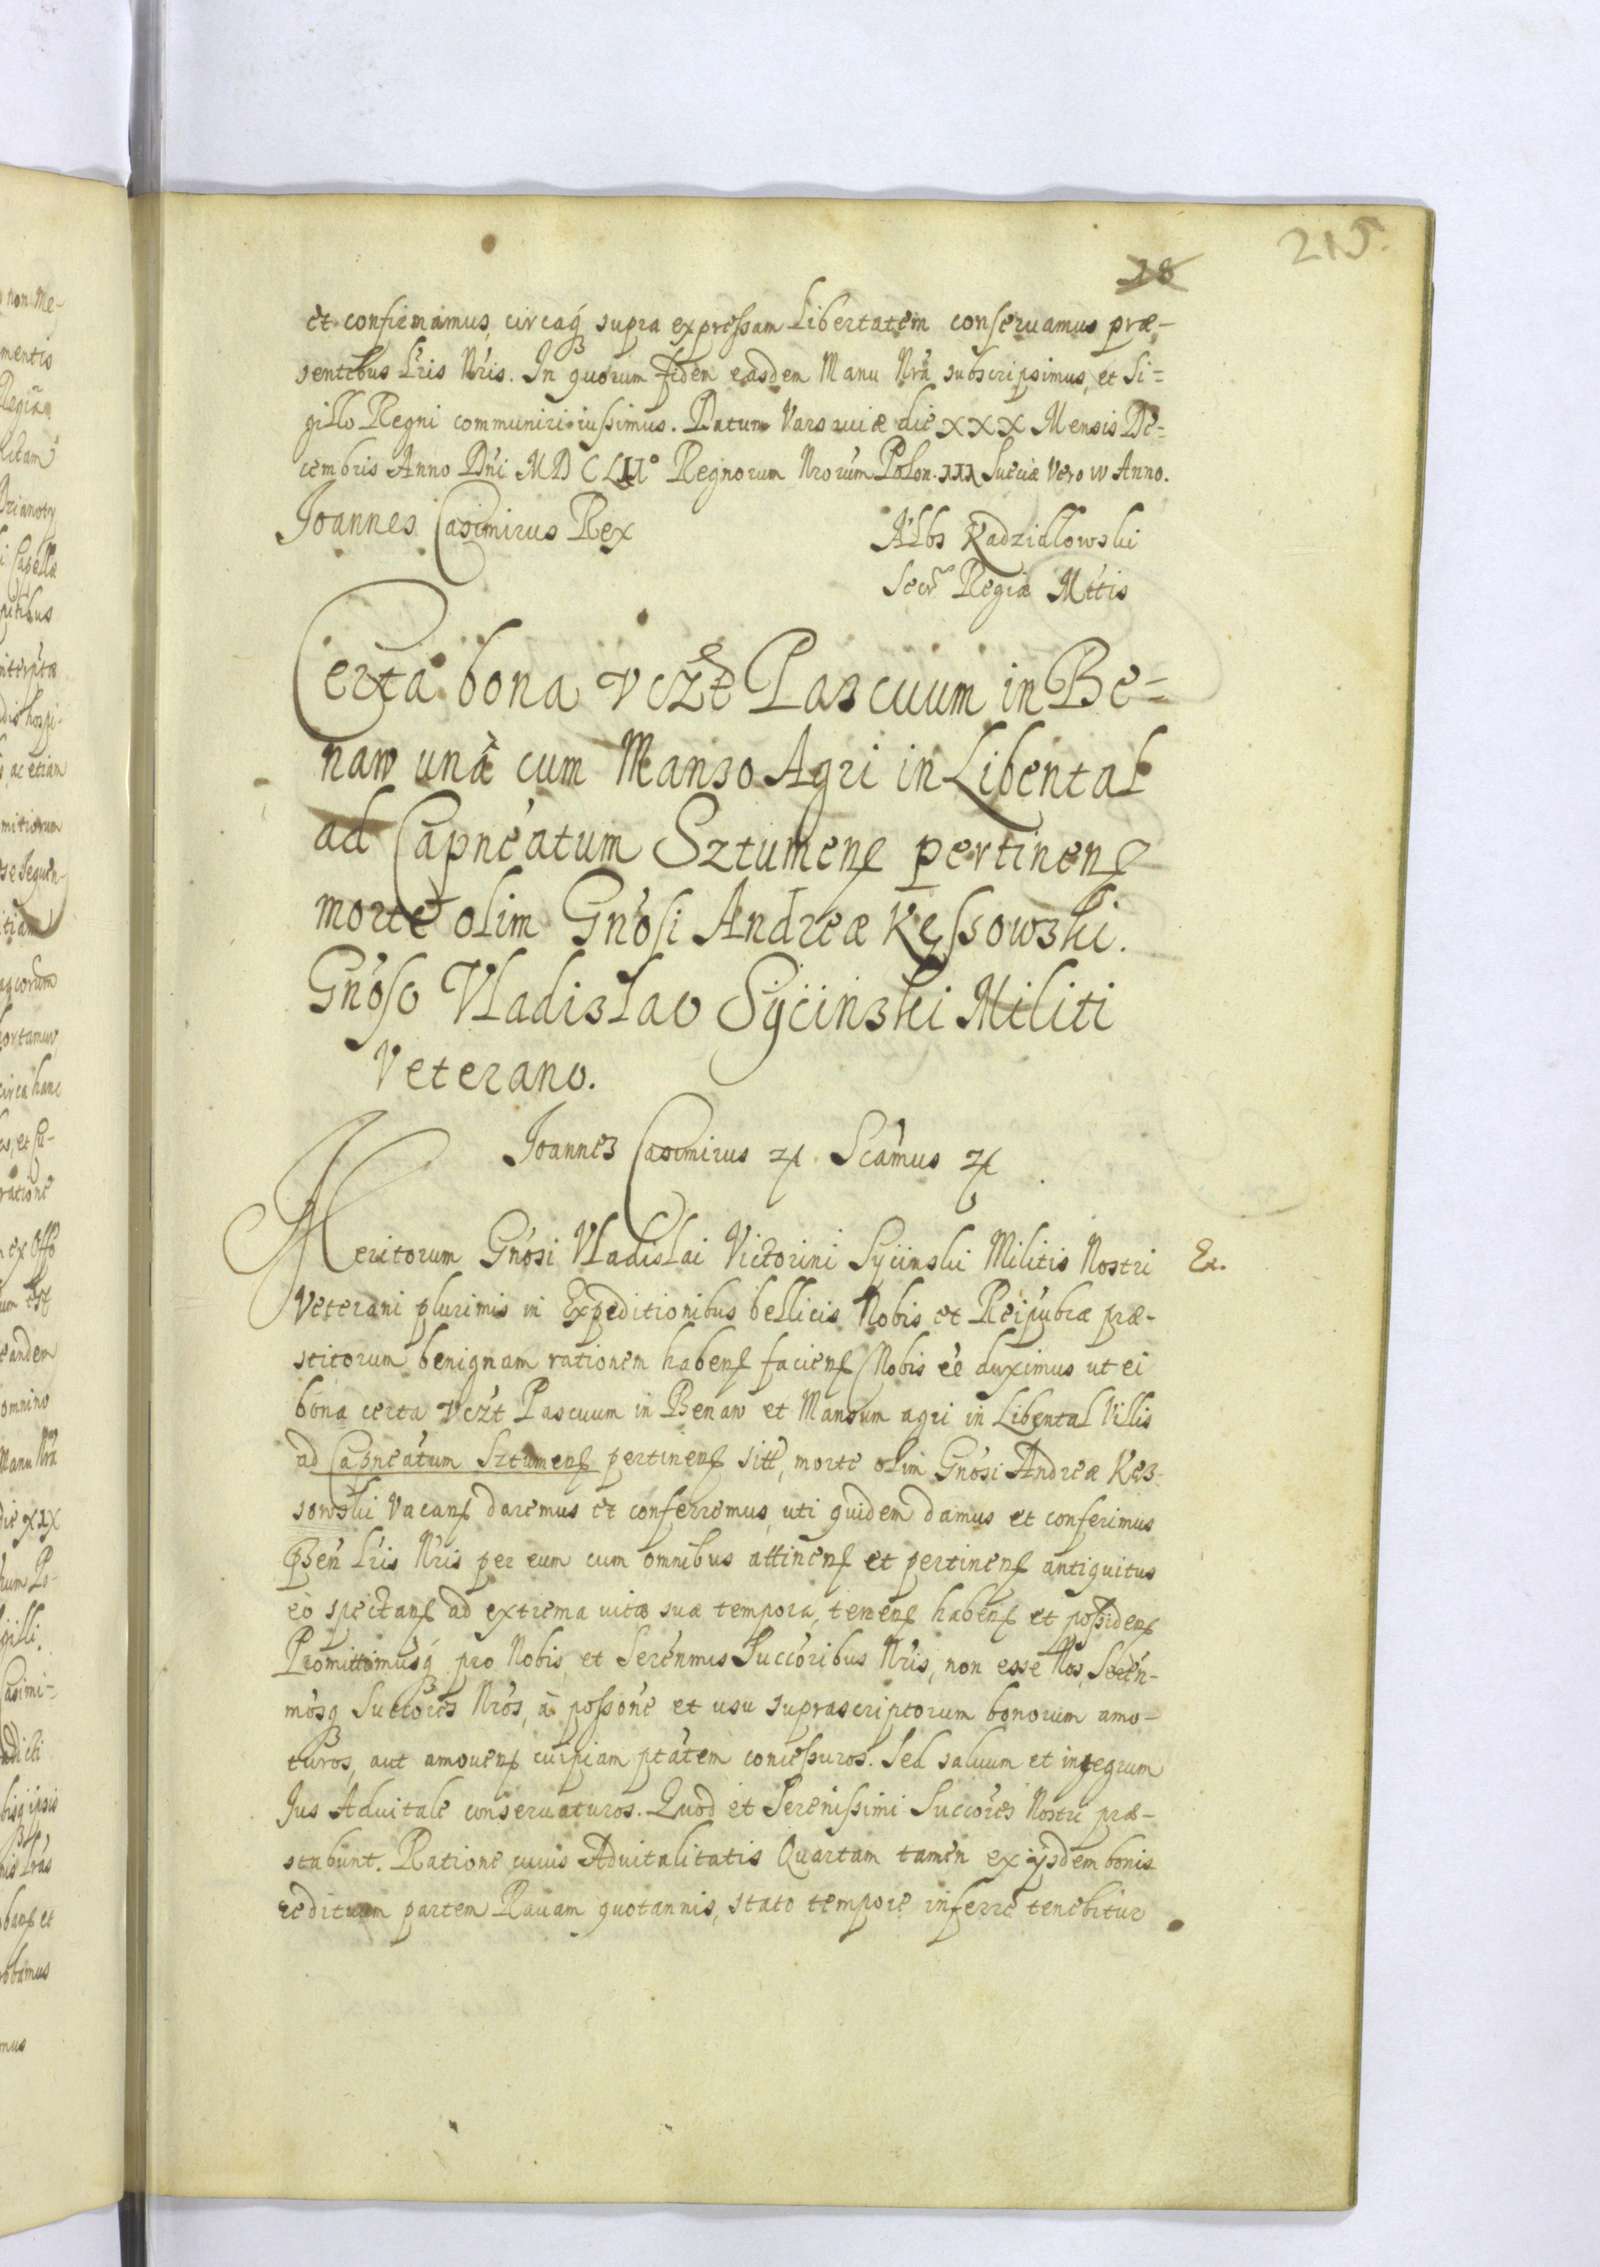 215.
18
et confirmamus, circaq́ supra expressam Libertatem conseruamus præ-
sentibus Lris Nris. In quorum fidem easdem Manu Nrâ subscripsimus, et Si=
gillo Regni communiri iussimus. Datum Varsauiæ die XXX Mensis De=
cembris Anno Dni MDCLII° Regnorum Nrorum Polon. III Sueciæ vero IV Anno.
Joannes Casimirus Rex
Albs Kadzidlowski
Secr Regiæ Mttis
Certa bona vczt Pascuum in Be=
naw unà cum Manso Agri in Libental
ad Capneatum Sztumens pertinens
morte olim Gnosi Andreæ Kessowski.
Gnoso Vladislao Syciinski Militi
Veterano.
Joannes Casimirus &. Scamus &
Meritorum Gnosi Vladislai Victorini Syciinski Militis Nostri
Ex.
Veterani plurimis in Expeditionibus bellicis Nobis et Reipubcæ præ-
stitorum benignam rationem habens faciens Nobis ee duximus ut ei
bona certa vczt Pascuum in Benaw et Mansum agri in Libental Villis
ad Capneatum Sztumens pertinens sitt, morte olim Gnosi Andreæ Kes-
sowski vacans daremus et conferremus, uti quidem damus et conferimus
Psen Lris Nris per eum cum omnibus attinens et pertinens antiquitus
eò spectans ad extrema vitæ suæ tempora, tenens habens et possidens
Promittimusq́ pro Nobis et Serenmis Succoribus Nris, non esse Nos, Seren-
mosq Succores Nros, à possone et usu suprascriptorum bonorum amo-
turos, aut amouens cuipiam ptatem concessuros. Sed saluum et integrum
Jus Aduitale conseruaturos. Quod et Serenissimi Succores Nostri præ-
stabunt. Ratione cuius Aduitalitatis Quartam tamen ex ijsdem bonis
redituum partem Rauam quotannis, stato tempore inferre tenebitur